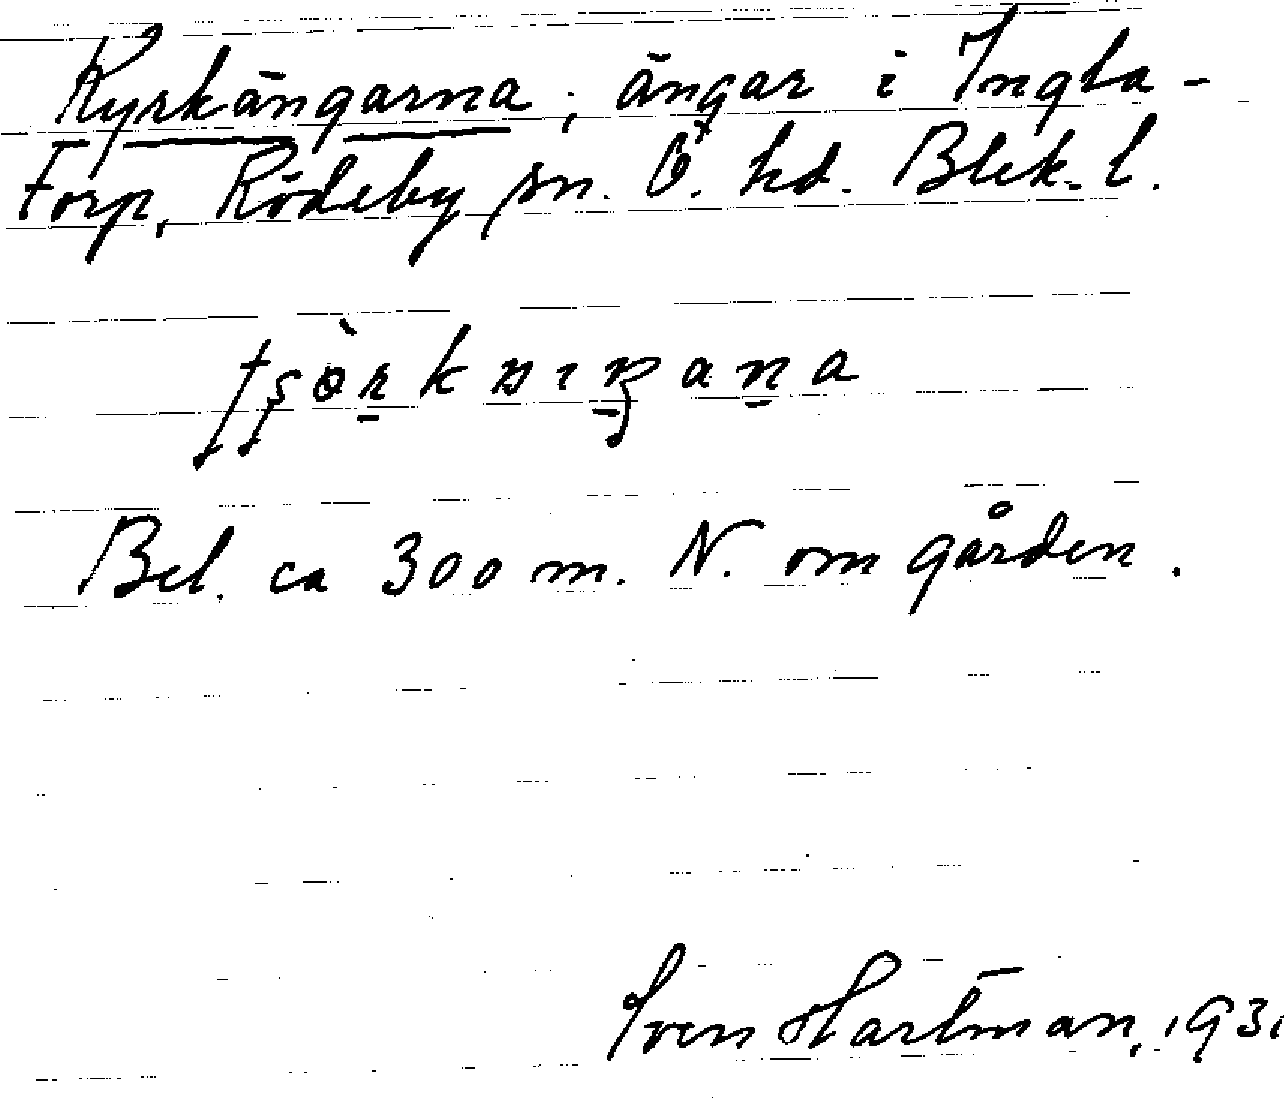 Kyrkängarna, ängar i Ingla-
Torp, Rödeby sn. Ö. hd. Blek. l.
Bel. ca 300 m. N. om gården.
Sven Hartman, 1931